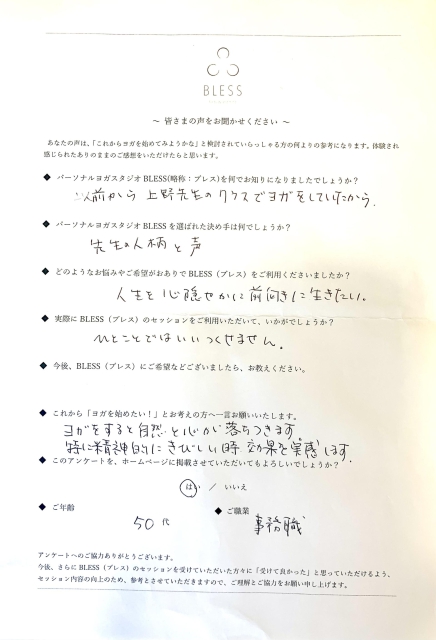 BLESS
～ 皆さまの声をお聞かせください ～
あなたの声は、「これからヨガを始めてみようかな」と検討されていらっしゃる方の何よりの参考になります。体験され
感じられたありのままのご感想をいただけたらと思います。
◆ パーソナルヨガスタジオBLESS(略称：ブレス)を何でお知りになりましたでしょうか？
以前から 上野先生のクラスでヨガをしていたから.
◆ パーソナルヨガスタジオBLESを選ばれた決め手は何でしょうか？
先生の人柄と声
◆ どのようなお悩みやご希望がおありでBLESS（ブレス）をご利用くださいましたか？
人生を心穏やかに前向きに生きたい。
◆ 実際にBLESS（ブレス）のセッションをご利用いただいて、いかがでしょうか？
ひとことではいいつくせません。
◆ 今後、BLESS（ブレス）にご希望などございましたら、お教えください。
◆ これから「ヨガを始めたい！」とお考えの方へ一言お願いいたします。
ヨガをすると自然と心が落ちつきます
特に精神的にきびしい時 効果を実感します.
◆ このアンケートを、ホームページに掲載させていただいてもよろしいでしょうか？
はい ／ いいえ
◆ ご年齢 ◆ ご職業
50代 事務職
アンケートへのご協力ありがとうございます。
今後、さらにBLESS（ブレス）のセッションを受けていただいた方々に「受けて良かった」と思っていただけるよう、
セッション内容の向上のため、参考とさせていただきますので、ご理解とご協力をお願い申し上げます。